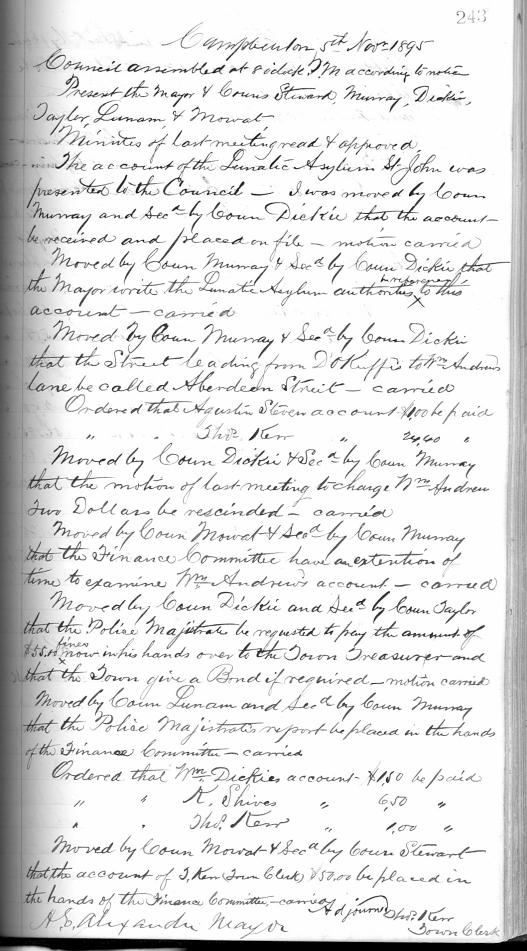 243
Campbellton 5th Nov 1895
Council assembled at 8 oclock P.M according to notice
Present the Mayor & Couns Steward, Murray, Dickie,
Taylor Lunam & Mowat
Minutes of last meeting read & approved.
The account of the Lunatic Asylum St John was
presented to the Council — I was moved by Coun
Murray and Secd by Coun Dickie that the account
be received and placed on file — motion carried
Moved by Coun Murray & Secd by Coun Dickie that
the Mayor write the Lunatic Asylum authorities in regard to this
account — carried
Moved by Coun Murray & Secd by Coun Dickie
that the Street leading from to Wm Andrews
lane be called Aberdeen Street — carried
Ordered that Agustin Steven account $1,00 be paid
" " Thos. Kerr " 24,40 "
Moved by Coun Dickie & Secd by Coun Murray
that the motion of last meeting to charge Wm Andrew
Two Dollars be rescinded — carried
Moved by Coun Mowat & Secd by Coun Murray
that the Finance Committee have an extention of
time to examine Wm Andrews account — carried
Moved by Coun Dickie and Secd by Coun Taylor
that the Police Majistrate be requested to pay the amount of
fines now in his hands over to the Town Treasurer and
that the Town give a Bond if required — motion carried
Moved by Coun Lunam and Secd by Coun Murray
that the Police Majistrates report be placed in the hands
of the Finance Committee — carried
Ordered that Wm Dickies account $1,50 be paid
" " K. Shives " 6,50 "
" " Thos. Kerr " 1,00 "
Moved by Coun Mowat & Secd by Coun Stewart
that the account of T, Kerr (Town Clerk) $50.00 be placed in
the hands of the Finance Committee — carried
Adjourned Thos. Kerr
A.E. Alexander Mayor Town Clerk